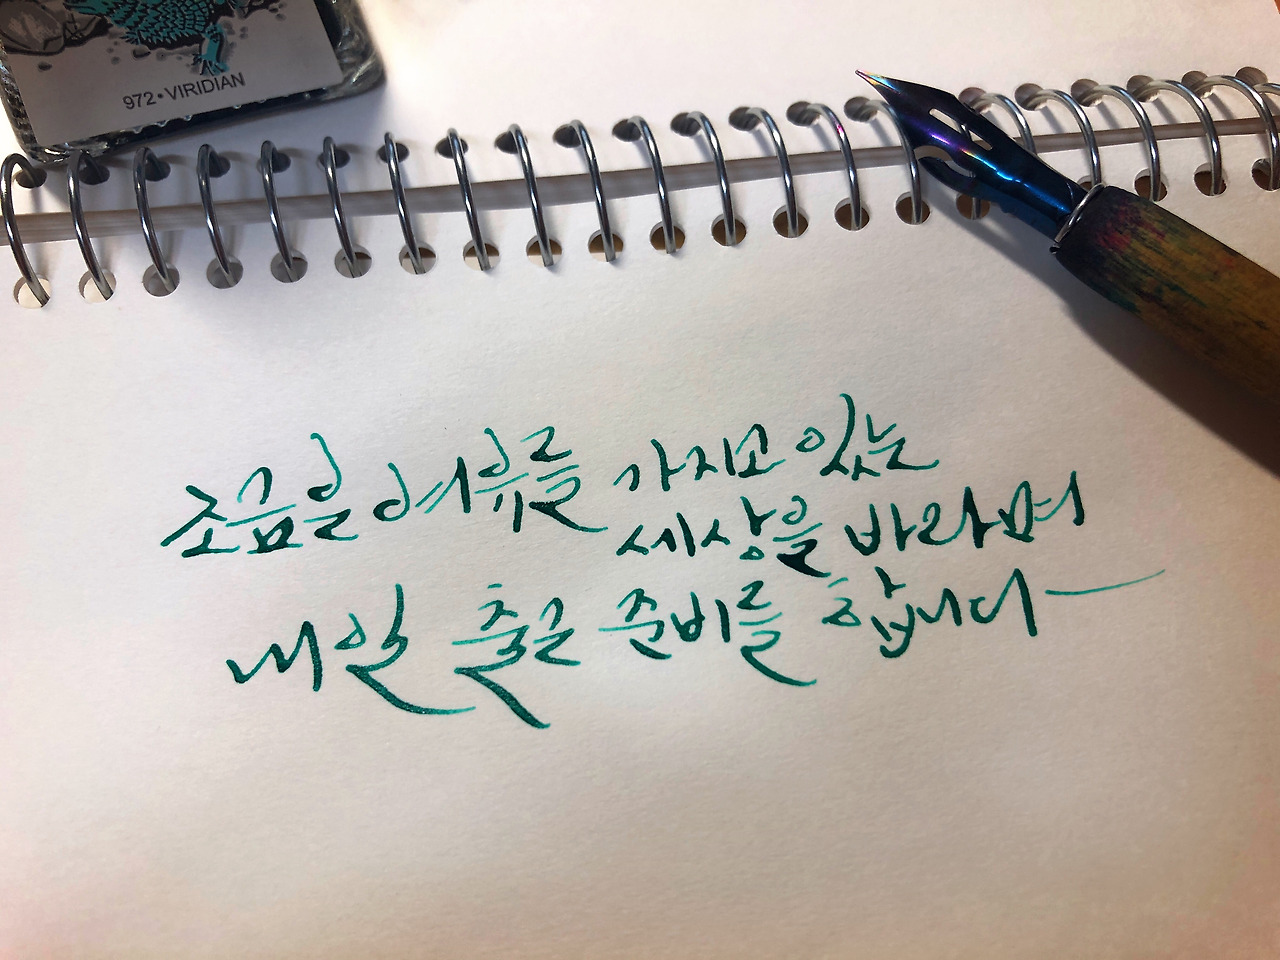 972•VIRIDIAN
조금을 여유를 가지고 있는
세상을 바라며
내일 출근 준비를 합니다